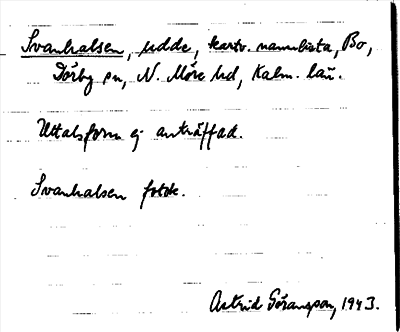 Svanhalsen, udde, kartv. namnlista, Bo,
Dörby sn, N. Möre hd, Kalm. län.
Uttalsform ej anträffad.
Svanhalsen fotok.
Astrid Göransson, 1943.